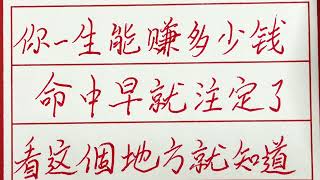 你一生能赚多少钱
命中早就注定了
看这個地方就知道